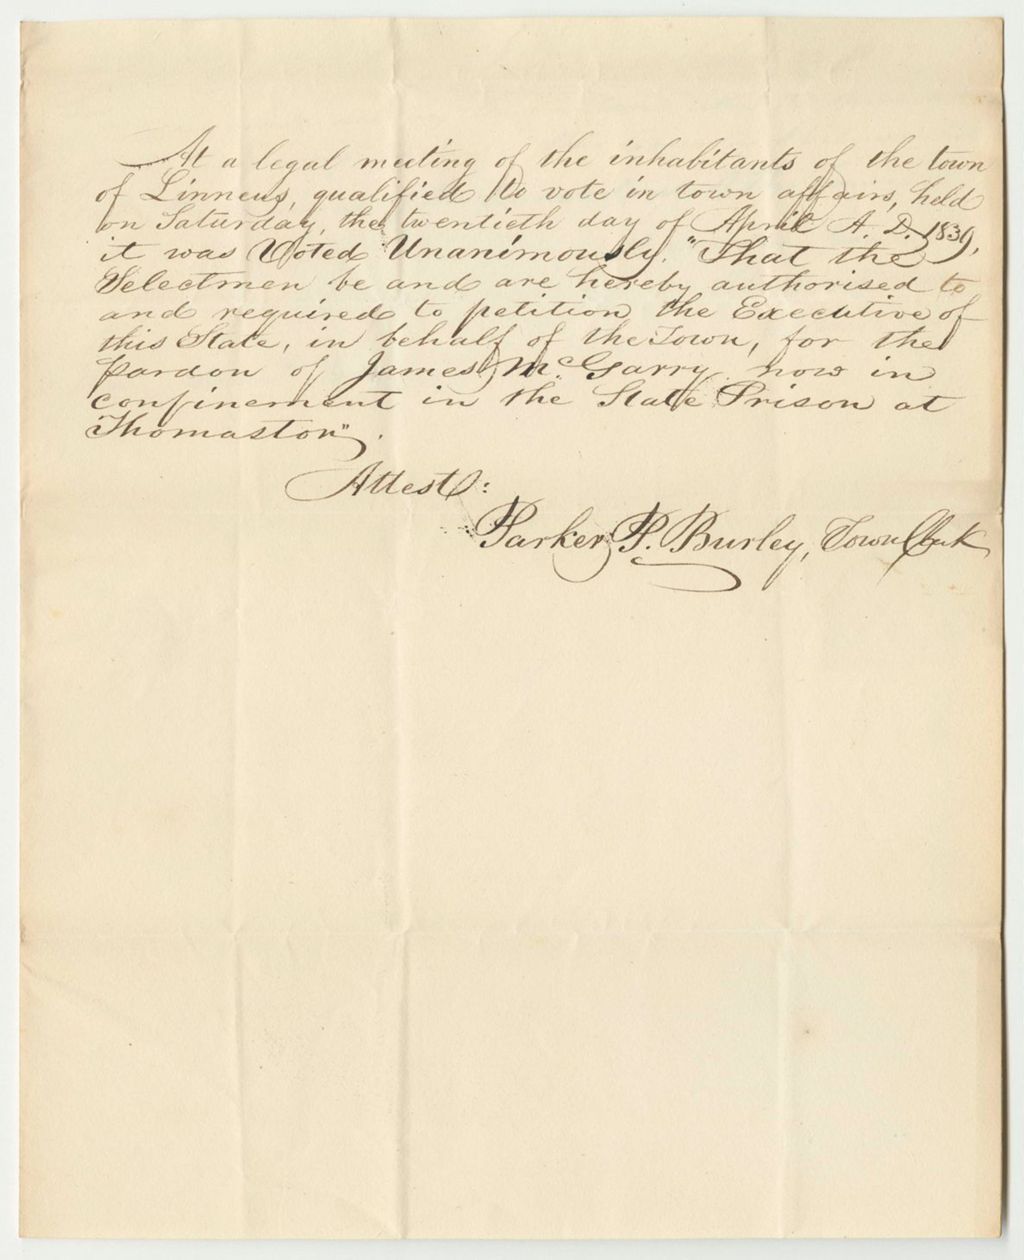 At a legal meeting of the inhabitants of the town
of Linneus, qualified to vote in town affairs, held
on Saturday, the twentieth day of April A. D. 1839,
it was Voted Unanimously, "That the
Selectmen be and are hereby authorised to
and required to petition the Executive of
this State, in behalf of the Town, for the
pardon of James McGarry now in
confinement in the State Prison at
Thomaston".
Attest:
Parker P. Burley, Town Clerk